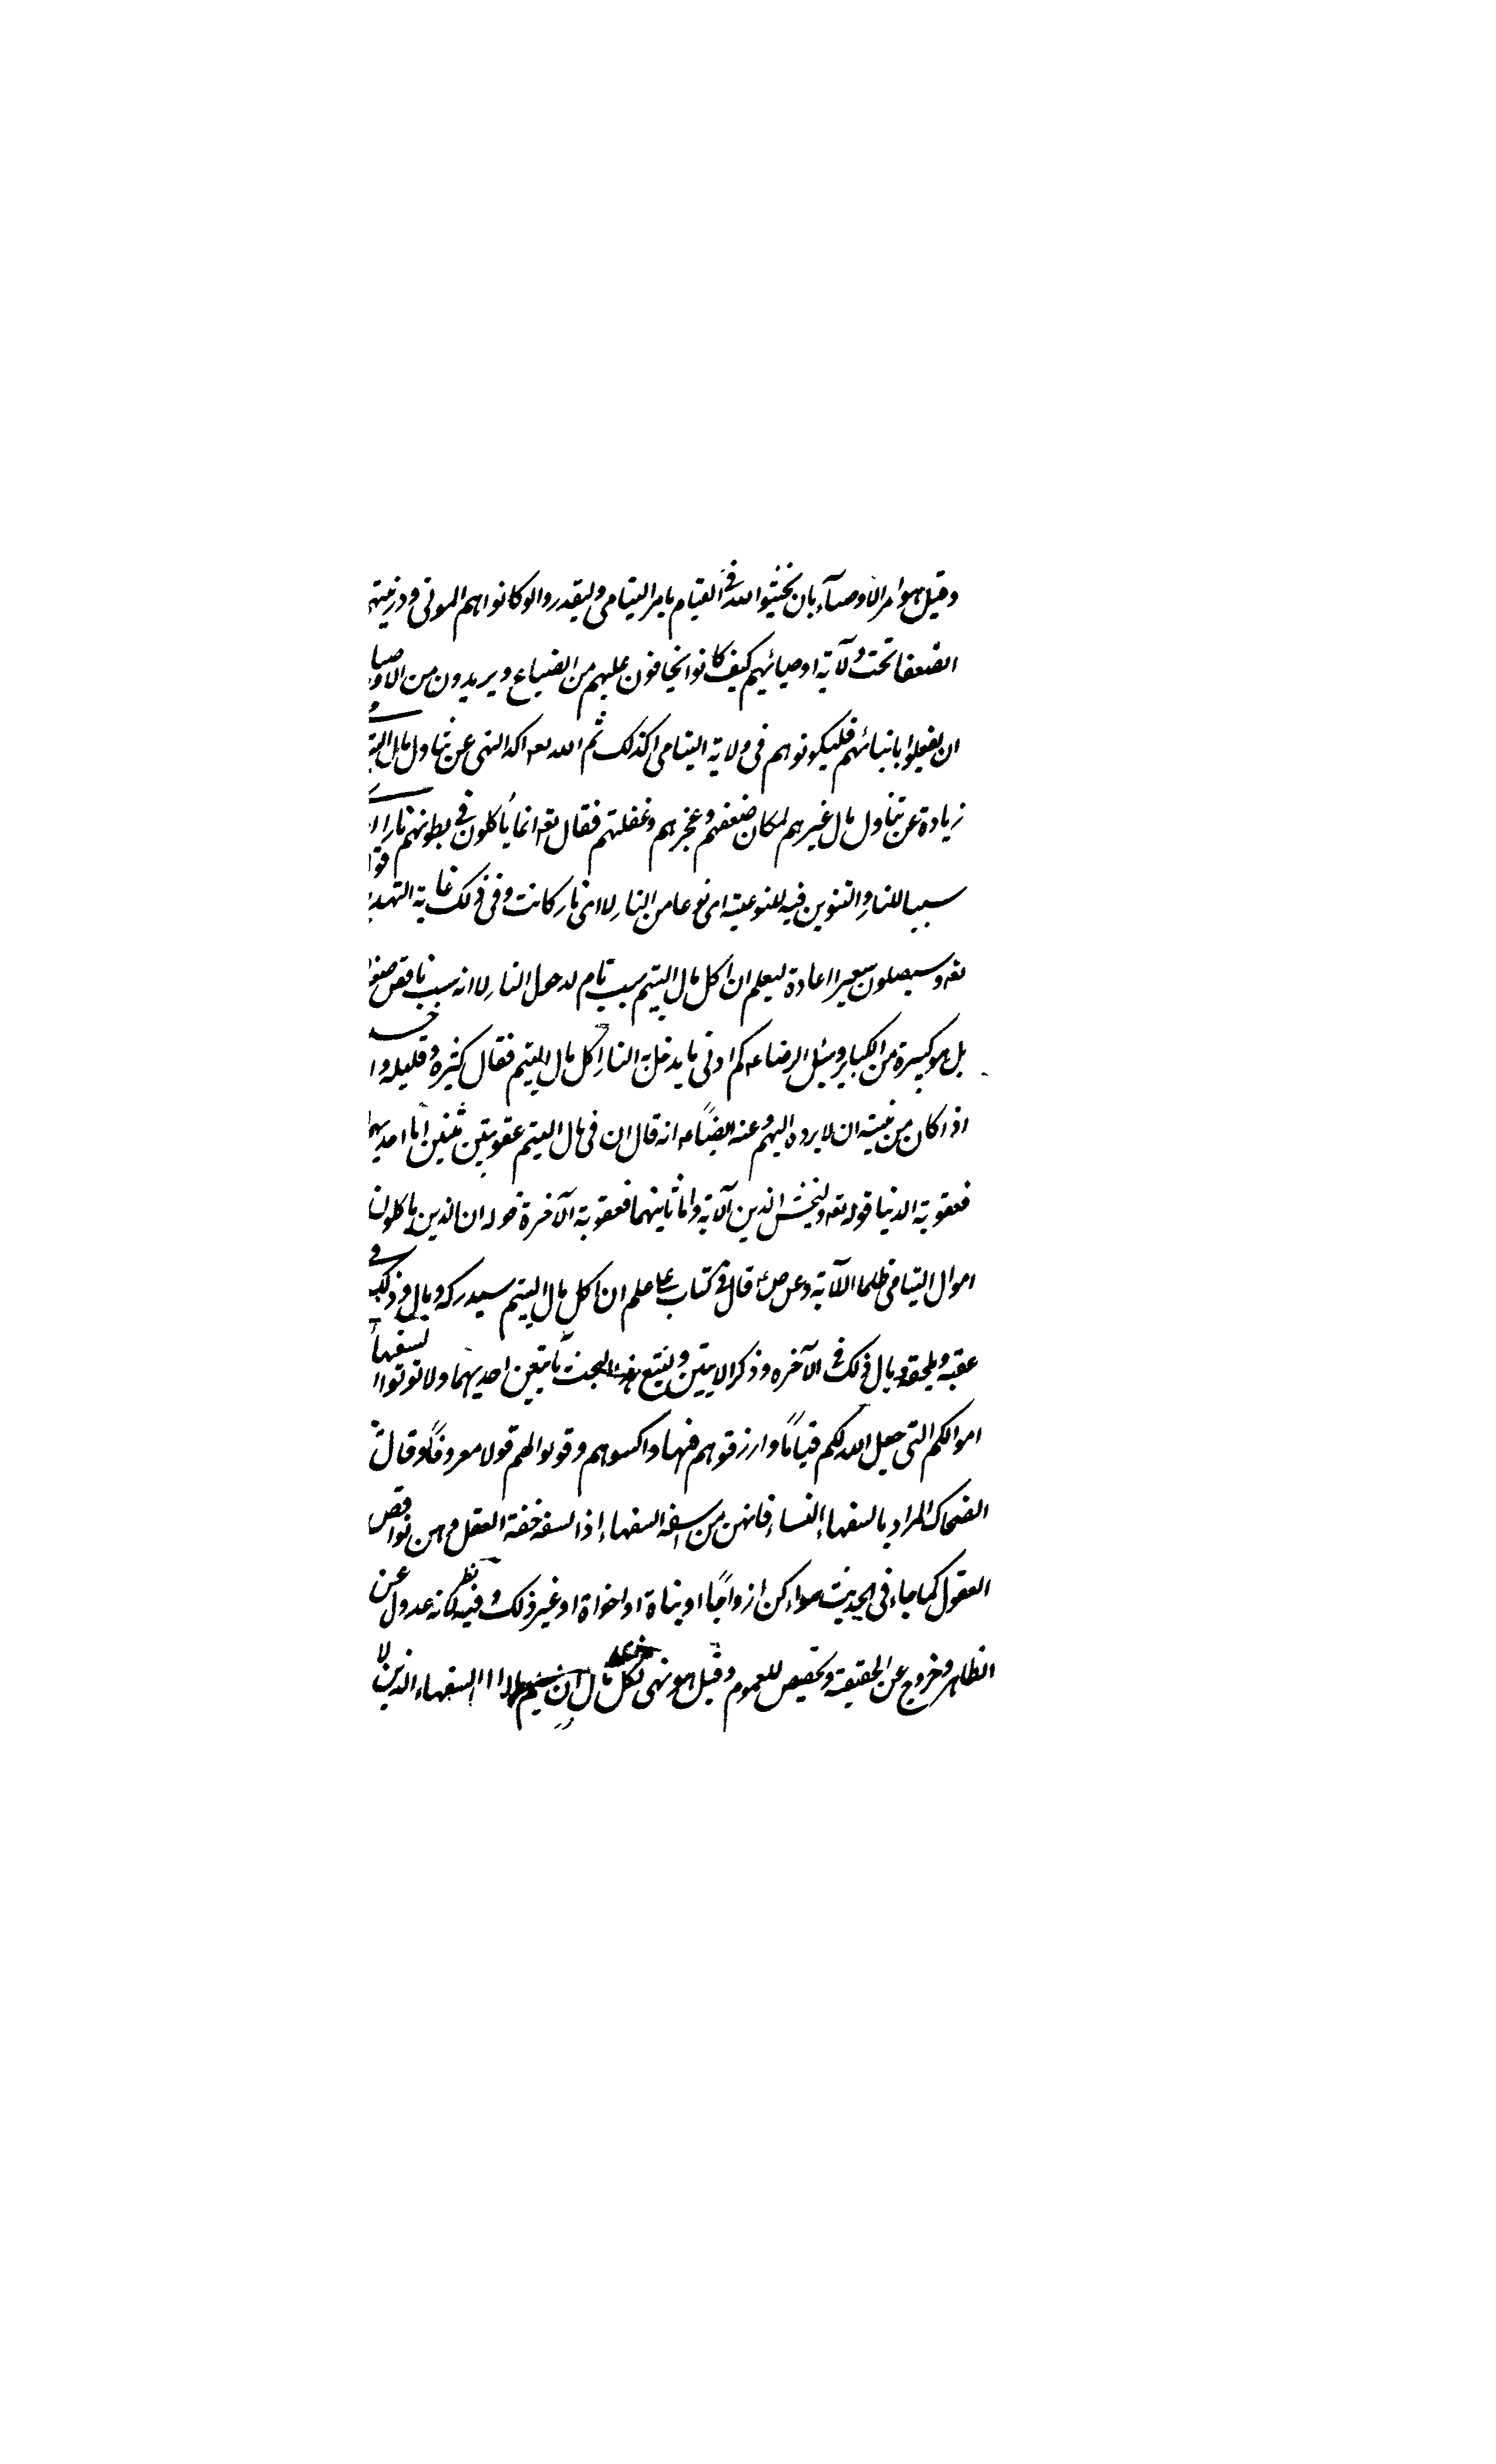 وقيل هو امر الاوصيآء بان يخشوا الله في القيام بامر اليتامى وليقدروا لو كانوا هم الموتى وذريتهم
الضعفا تحت ولآية اوصيائهم كيف كانوا يخافون عليهم من الضياع ويريدون من الاوصيا
ان يفعلوا بابنائهم فليكونوا هم فى ولاية اليتامى كذلك ثم الله تعه اكد النهى عن تناول مال اليتيم
زيادة عن تناول مال غيرهم لمكان ضعفهم وعجزهم وغفلتهم فقال تعه انما يأكلون في بطونهم نارا
سببا للنار والتنوين فيه للنوعية اى نوعا من النار لا اى نار كانت وفى ذلك غاية التهديد
تعه وسيصلون سعيرا اعادة ليعلم ان اكل مال اليتيم سبب تام لدخول النار لا انه سبب ناقص
بل هو كبيرة من الكباير وسئل الرضا عه كم ادنى ما يدخل به النار اكل مال اليتيم فقال كثيره وقليله واحد
اذا كان من نيته ان لا يرده اليهم وعنه ايضًا عه انه قال ان فى مال اليتيم عقوبتين ثنتين اما احديهما
فعقوبة الدنيا قوله تعه وليخش الذين الآية واما ثانيهما فعقوبة الآخرة قوله ان الذين ياكلون
اموال اليتامى ظلما الآية وعن ص ع قال في كتاب على علم ان اكل مال اليتيم سيدركه وبال ذلك في
عقبه ويلحقه وبال ذلك فى الآخره وذكر الايتين ويتبع هذا البحث بايتين احديهما ولا توتوا السفهاء
اموالكم التى جعل الله لكم قيامًا وارزقوهم فيها واكسوهم وقولوا لهم قولا معروفًا وقال
الضحاك المراد بالسفهاء النساء فانهن من اسفه السفهاء اذ السفه خفة العقل وهن نواقص
العقول كما جاء فى الحديث سواء كن ازواجًا او بناة او اخواة او غير ذلك وفيه نظر لانه عدول عن
الظاهر وخروج عن الحقيقة وتخصيص للعموم وقيل هو نهى لكل ان السفهاء الذين لا